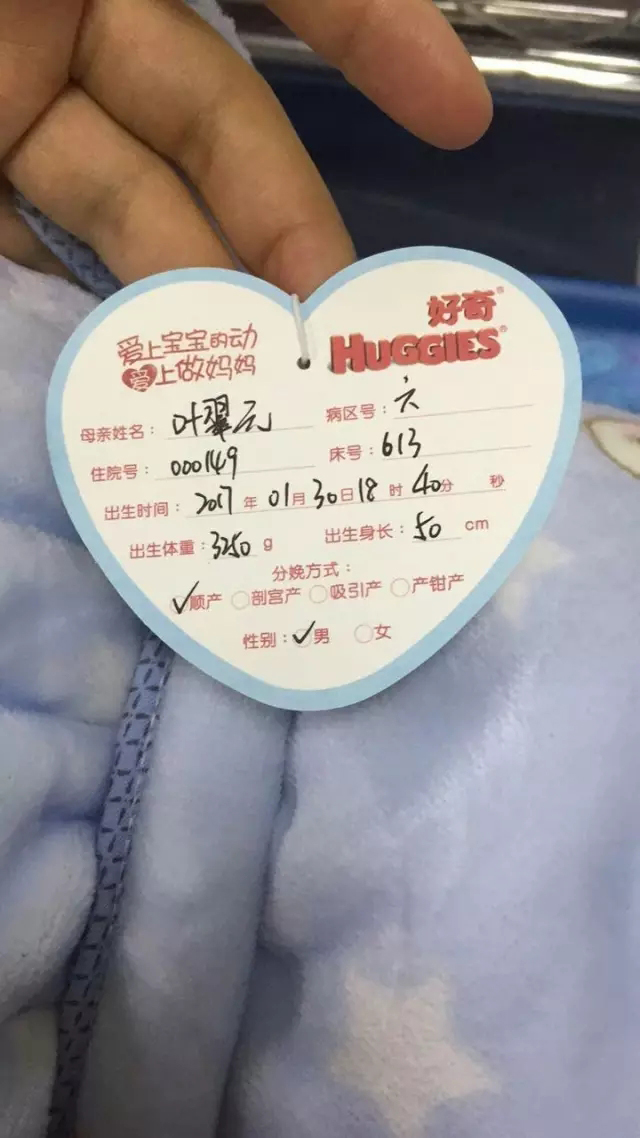 爱上宝宝的动
爱上做妈妈
好奇®
HUGGIES®
母亲姓名：叶翠元 病区号：六
住院号：000149 床号：613
出生时间：2017年01月30日18时40分 秒
出生体重：3250 g 出生身长：50 cm
分娩方式：
✓顺产 ○剖宫产 ○吸引产 ○产钳产
性别：✓男 ○女